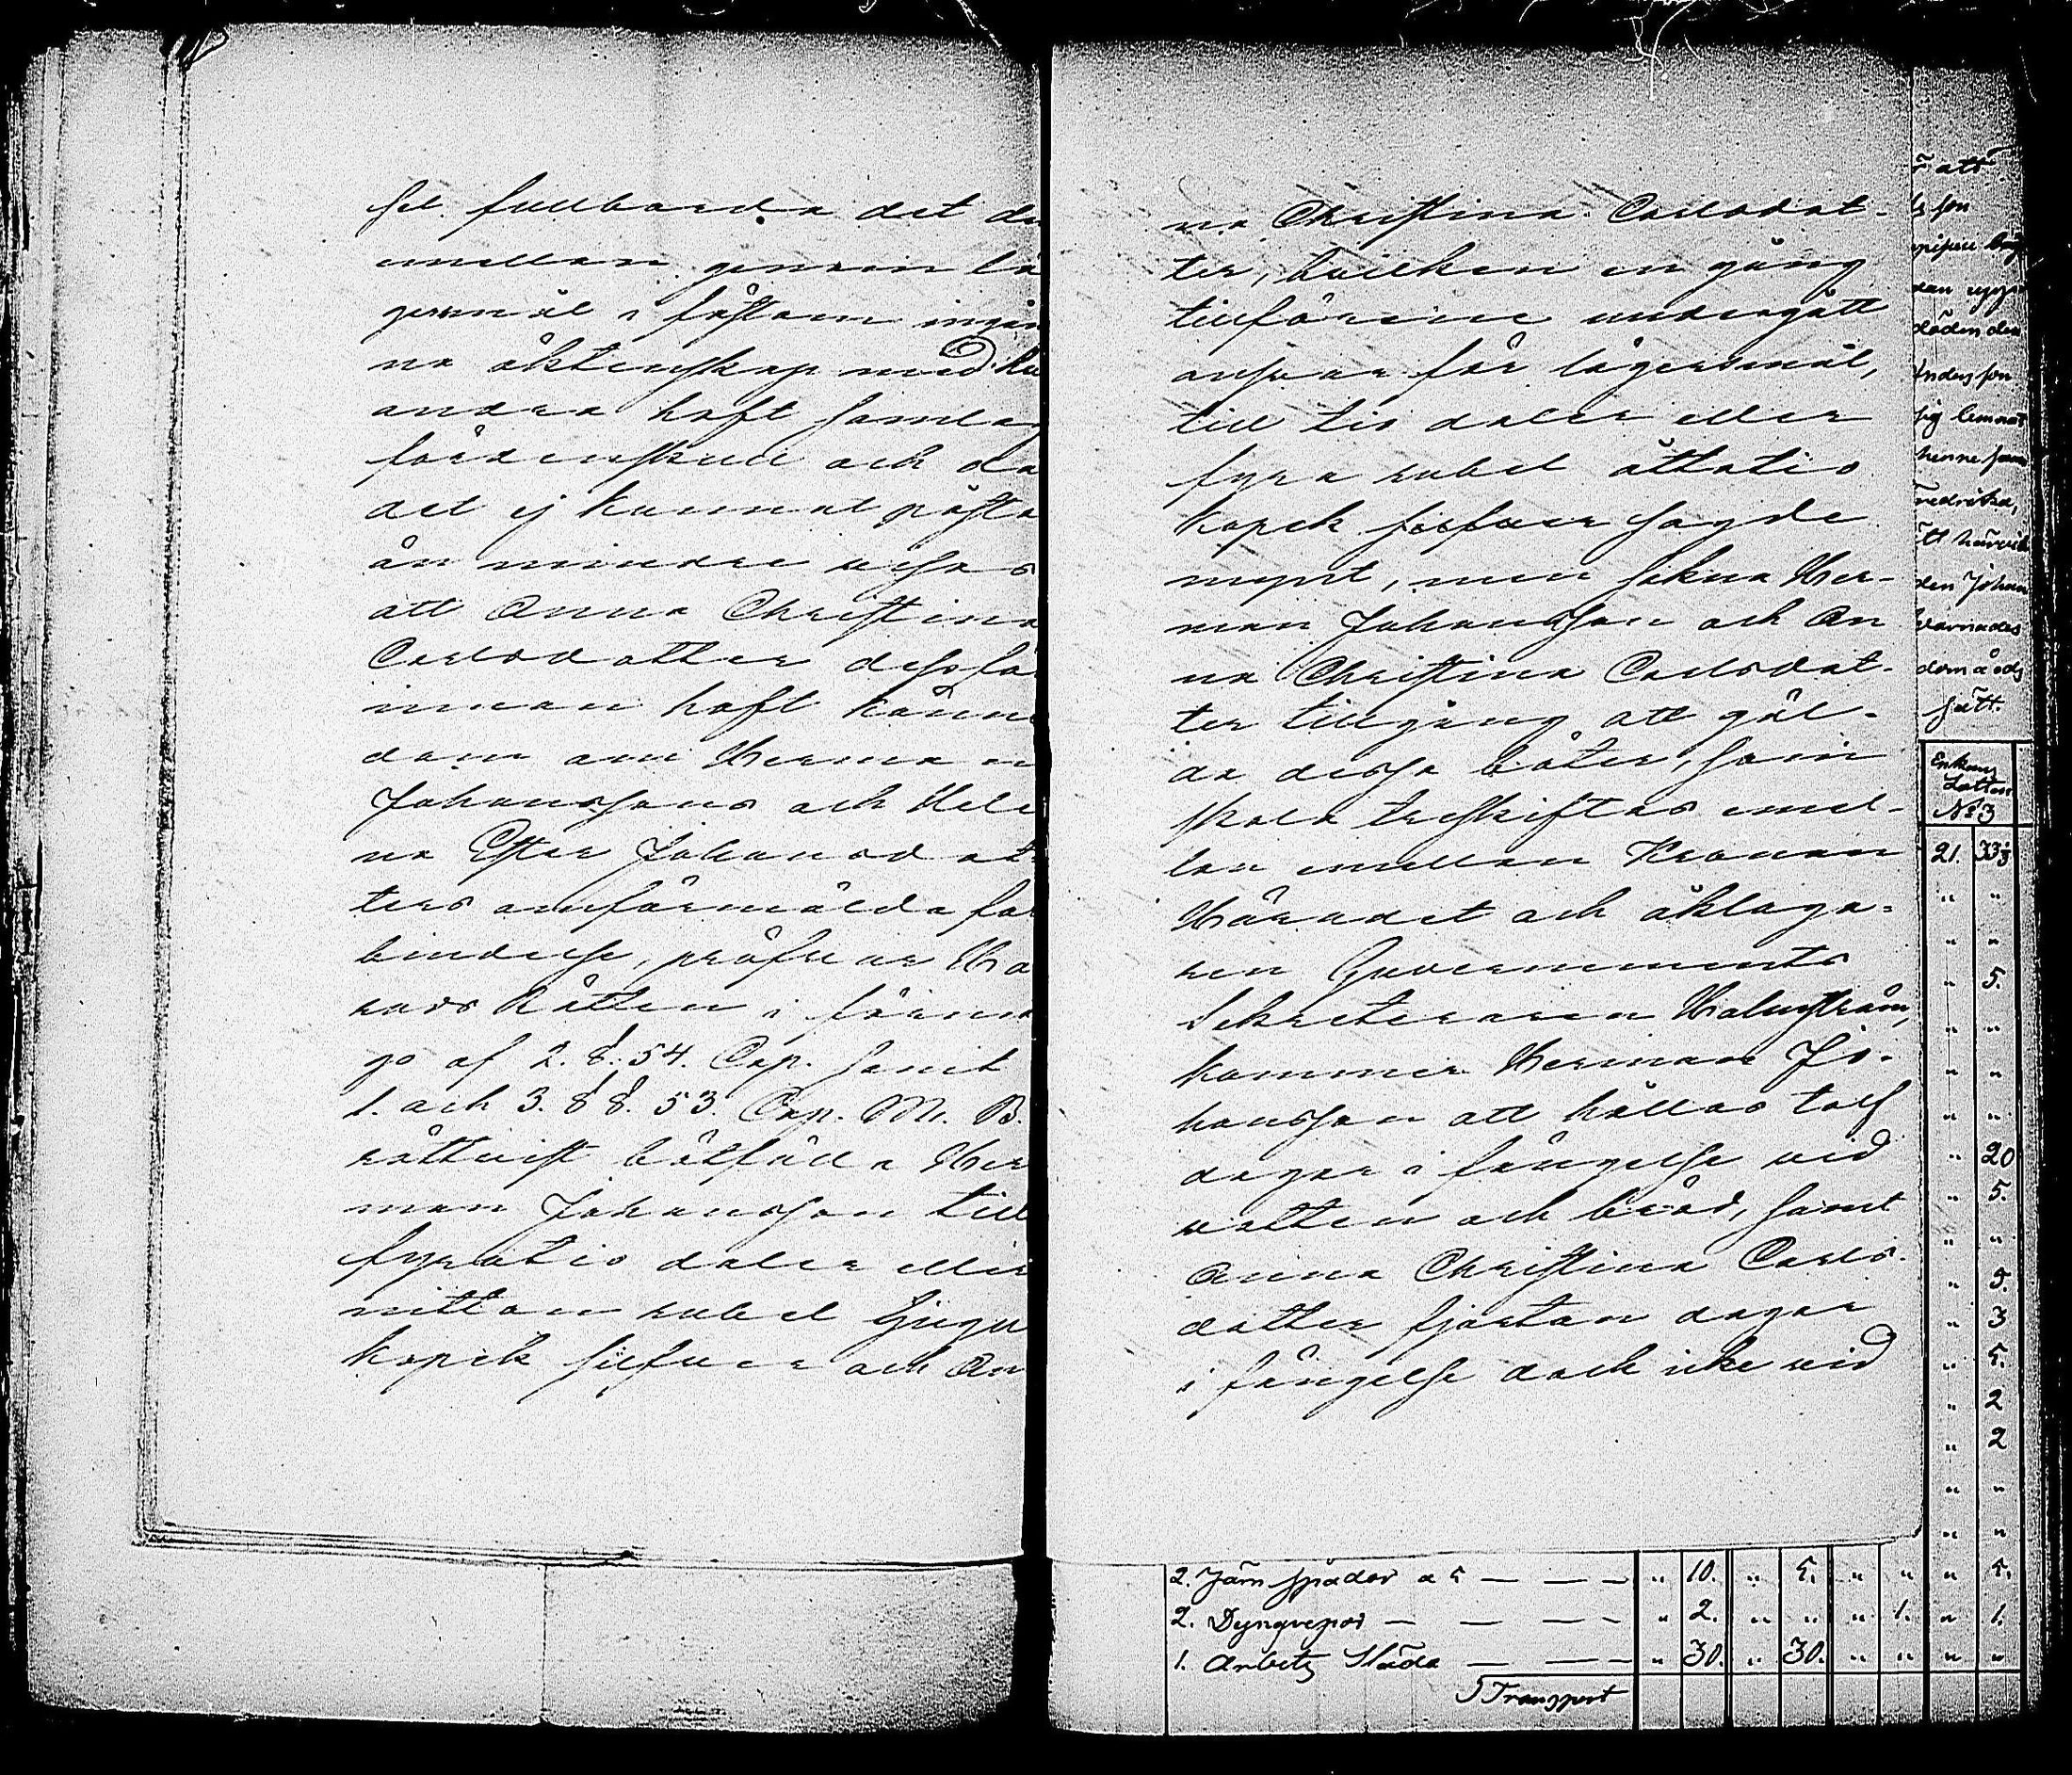 sel. fullborda det de
emellan genom lä
gersmål i fästom ingån
na äktenskap med hv
andra haft samlag
fördenskull och då
det ej kunnat påstå
än mindre visas
att Anna Christina
Carlsdotter dessför
innan haft känne
dom om Herman
Johanssons och Hele
na Ester Johansdot
ters omförmälda för
bindelse, pröfvar Hä
rads Rätten i förmå
go af 2. §. 54. Cap. samt
1. och 3. §§. 53. Cap. M. B.
rättvist bötfälla Her
man Johansson till
fyratio daler eller
nitton rubel tjugu
kopek silfver och An
na Christina Carlsdot-
ter, hvilken en gång
tillförene undergått
ansvar för lägersmål,
till tio daler eller
fyra rubel åttatio
kopek silfver sagde
mynt, men sakna Her-
man Johansson och An
na Christina Carlsdot-
ter tillgång att gäl-
da dessa böter, som
skola treskiftas emel-
lan emellan Kronan
Häradet och åklaga-
ren Guvernements
Sekreteraren Holmström,
kommer Herman Jo-
hansson att hållas tolf
dagar i fängelse vid
vatten och bröd, samt
Anna Christina Carls-
dotter fjorton dagar
i fängelse dock icke vid
att
son
döden den
Anders son
sig lemnat
henne
den Johan
varnades
sätt.
Enkans
Lotten
No 3
21. 33⅓
" "
" "
" 5.
" "
" "
" "
" 20
" 5.
" "
" 5.
" 3
" 5.
" 2
" 2
" "
" "
2. Järn spador a 5 — — — " 10. " 5. " " " 5.
2. Dyngrepor — — — — " 2. " " " 1. " 1.
1. Arbets Släda — — — " 30. " 30. " " " "
Transport